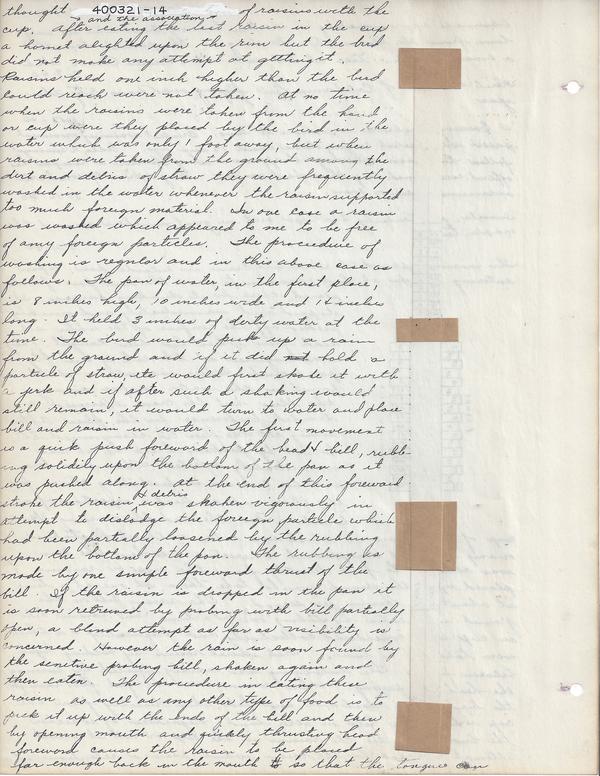 thought 400321-14 of raisins with the
→ and the association →
cup. After eating the last raisin in the cup
a hornet alighted upon the rim but the bird
did not make any attempt at getting it.
Raisins held one inch higher than the bird
could reach were not taken. At no time
when the raisins were taken from the hand
or cup were they placed by the bird in the
water which was only 1 foot away, but when
raisins were taken from the ground among the
dirt and debris of straw they were frequently
washed in the water whenever the raisin supported
too much foreign material. In one case a raisin
was washed which appeared to me to be free
of any foreign particles. The procedure of
washing is regular and in this above case as
follows. The pan of water, in the first place,
is 8 inches high, 10 inches wide and 14 inches
long. It held 3 inches of dirty water at the
time. The bird would pick up a raisin
from the ground and if it did not hold a
particle of straw, etc would first shake it with
a jerk and if after such a shaking would
still remain, it would turn to water and place
bill and raisin in water. The first movement
is a quick push foreword of the head & bill, rubb-
ing solidity upon the bottom of the pan as it
was pushed along. At the end of this foreward
stroke the raisin & debris was shaken vigorously in
attempt to dislodge the foreign particle which
had been partially loosened by the rubbing
upon the bottom of the pan. The rubbing is
made by one simple foreward thrust of the
bill. If the raisin is dropped in the pan it
is soon retrieved by probing with bill partially
open, a blind attempt as far as visibility is
concerned. However the rain is soon found by
the sensitive probing bill, shaken again and
then eaten. The procedure in eating these
raisin as well as any other type of food is to
pick it up with the ends of the bill and then
by opening mouth and quickly thrusting head
foreword causes the raisin to be placed
far enough back in the mouth so that the tongue can